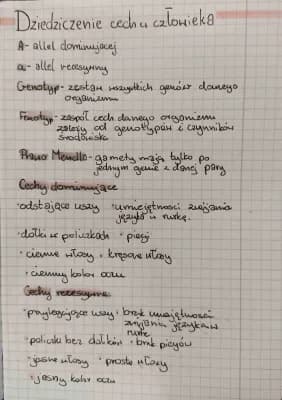 Dziedziczenie cech u człowieka
A - allel dominującej
a - allel recesywny
Genotyp - zestaw wszystkich genów danego
organizmu
Fenotyp - zespół cech danego organizmu
zależy od genotypów i czynników
środowiska
Prawo Mendla - gamety mają tylko po
jednym genie z danej pary
Cechy dominujące
·odstające uszy ·umiejętności zwijania
języka w rurkę.
·dołki w policzkach ·piegi
·ciemne włosy ·kręcone włosy
·ciemny kolor oczu
Cechy recesywne
·przylegające uszy ·brak umiejętność
zwijania języka w
rurkę
·policzki bez dołków ·brak piegów
·jasne włosy ·proste włosy
·jasny kolor oczu